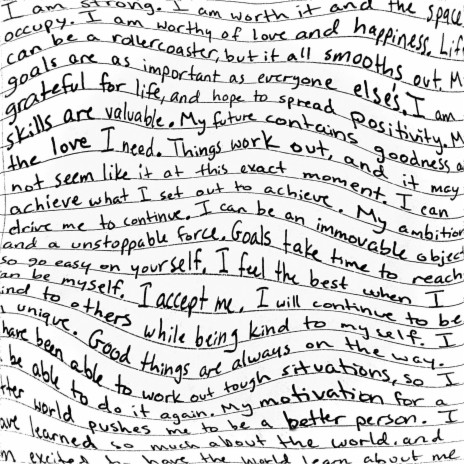 I am strong. I am worth it and the space
occupy. I am worthy of love and happiness. Lif
can be a rollercoaster, but it all smooths out. M
goals are as important as everyone else's. I am
grateful for life, and hope to spread positivity. M
skills are valuable. My future contains goodness a
the love I need. Things work out, and it may
not seem like it at this exact moment. I can
achieve what I set out to achieve. My ambition
drive me to continue. I can be an immovable object
and a unstoppable force. Goals take time to reach
so go easy on yourself. I feel the best when I
an be myself. I accept me. I will continue to be
ind to others while being kind to myself. I
unique. Good things are always on the way.
have been able to work out tough situations, so I
be able to do it again. My motivation for a
tter world pushes me to be a better person. I
ave learned so much about the world, and
m excited to have the world learn about me